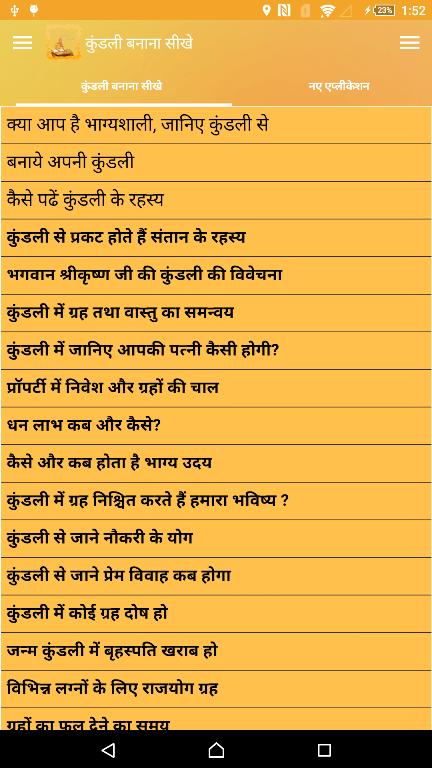 23% 1:52
कुंडली बनाना सीखे
कुंडली बनाना सीखे नए एप्लीकेशन
क्या आप है भाग्यशाली, जानिए कुंडली से
बनाये अपनी कुंडली
कैसे पढें कुंडली के रहस्य
कुंडली से प्रकट होते हैं संतान के रहस्य
भगवान श्रीकृष्ण जी की कुंडली की विवेचना
कुंडली में ग्रह तथा वास्तु का समन्वय
कुंडली में जानिए आपकी पत्नी कैसी होगी?
प्रॉपर्टी में निवेश और ग्रहों की चाल
धन लाभ कब और कैसे?
कैसे और कब होता है भाग्य उदय
कुंडली में ग्रह निश्चित करते हैं हमारा भविष्य ?
कुंडली से जाने नौकरी के योग
कुंडली से जाने प्रेम विवाह कब होगा
कुंडली में कोई ग्रह दोष हो
जन्म कुंडली में बृहस्पति खराब हो
विभिन्न लग्नों के लिए राजयोग ग्रह
ग्रहों का फल देने का समय